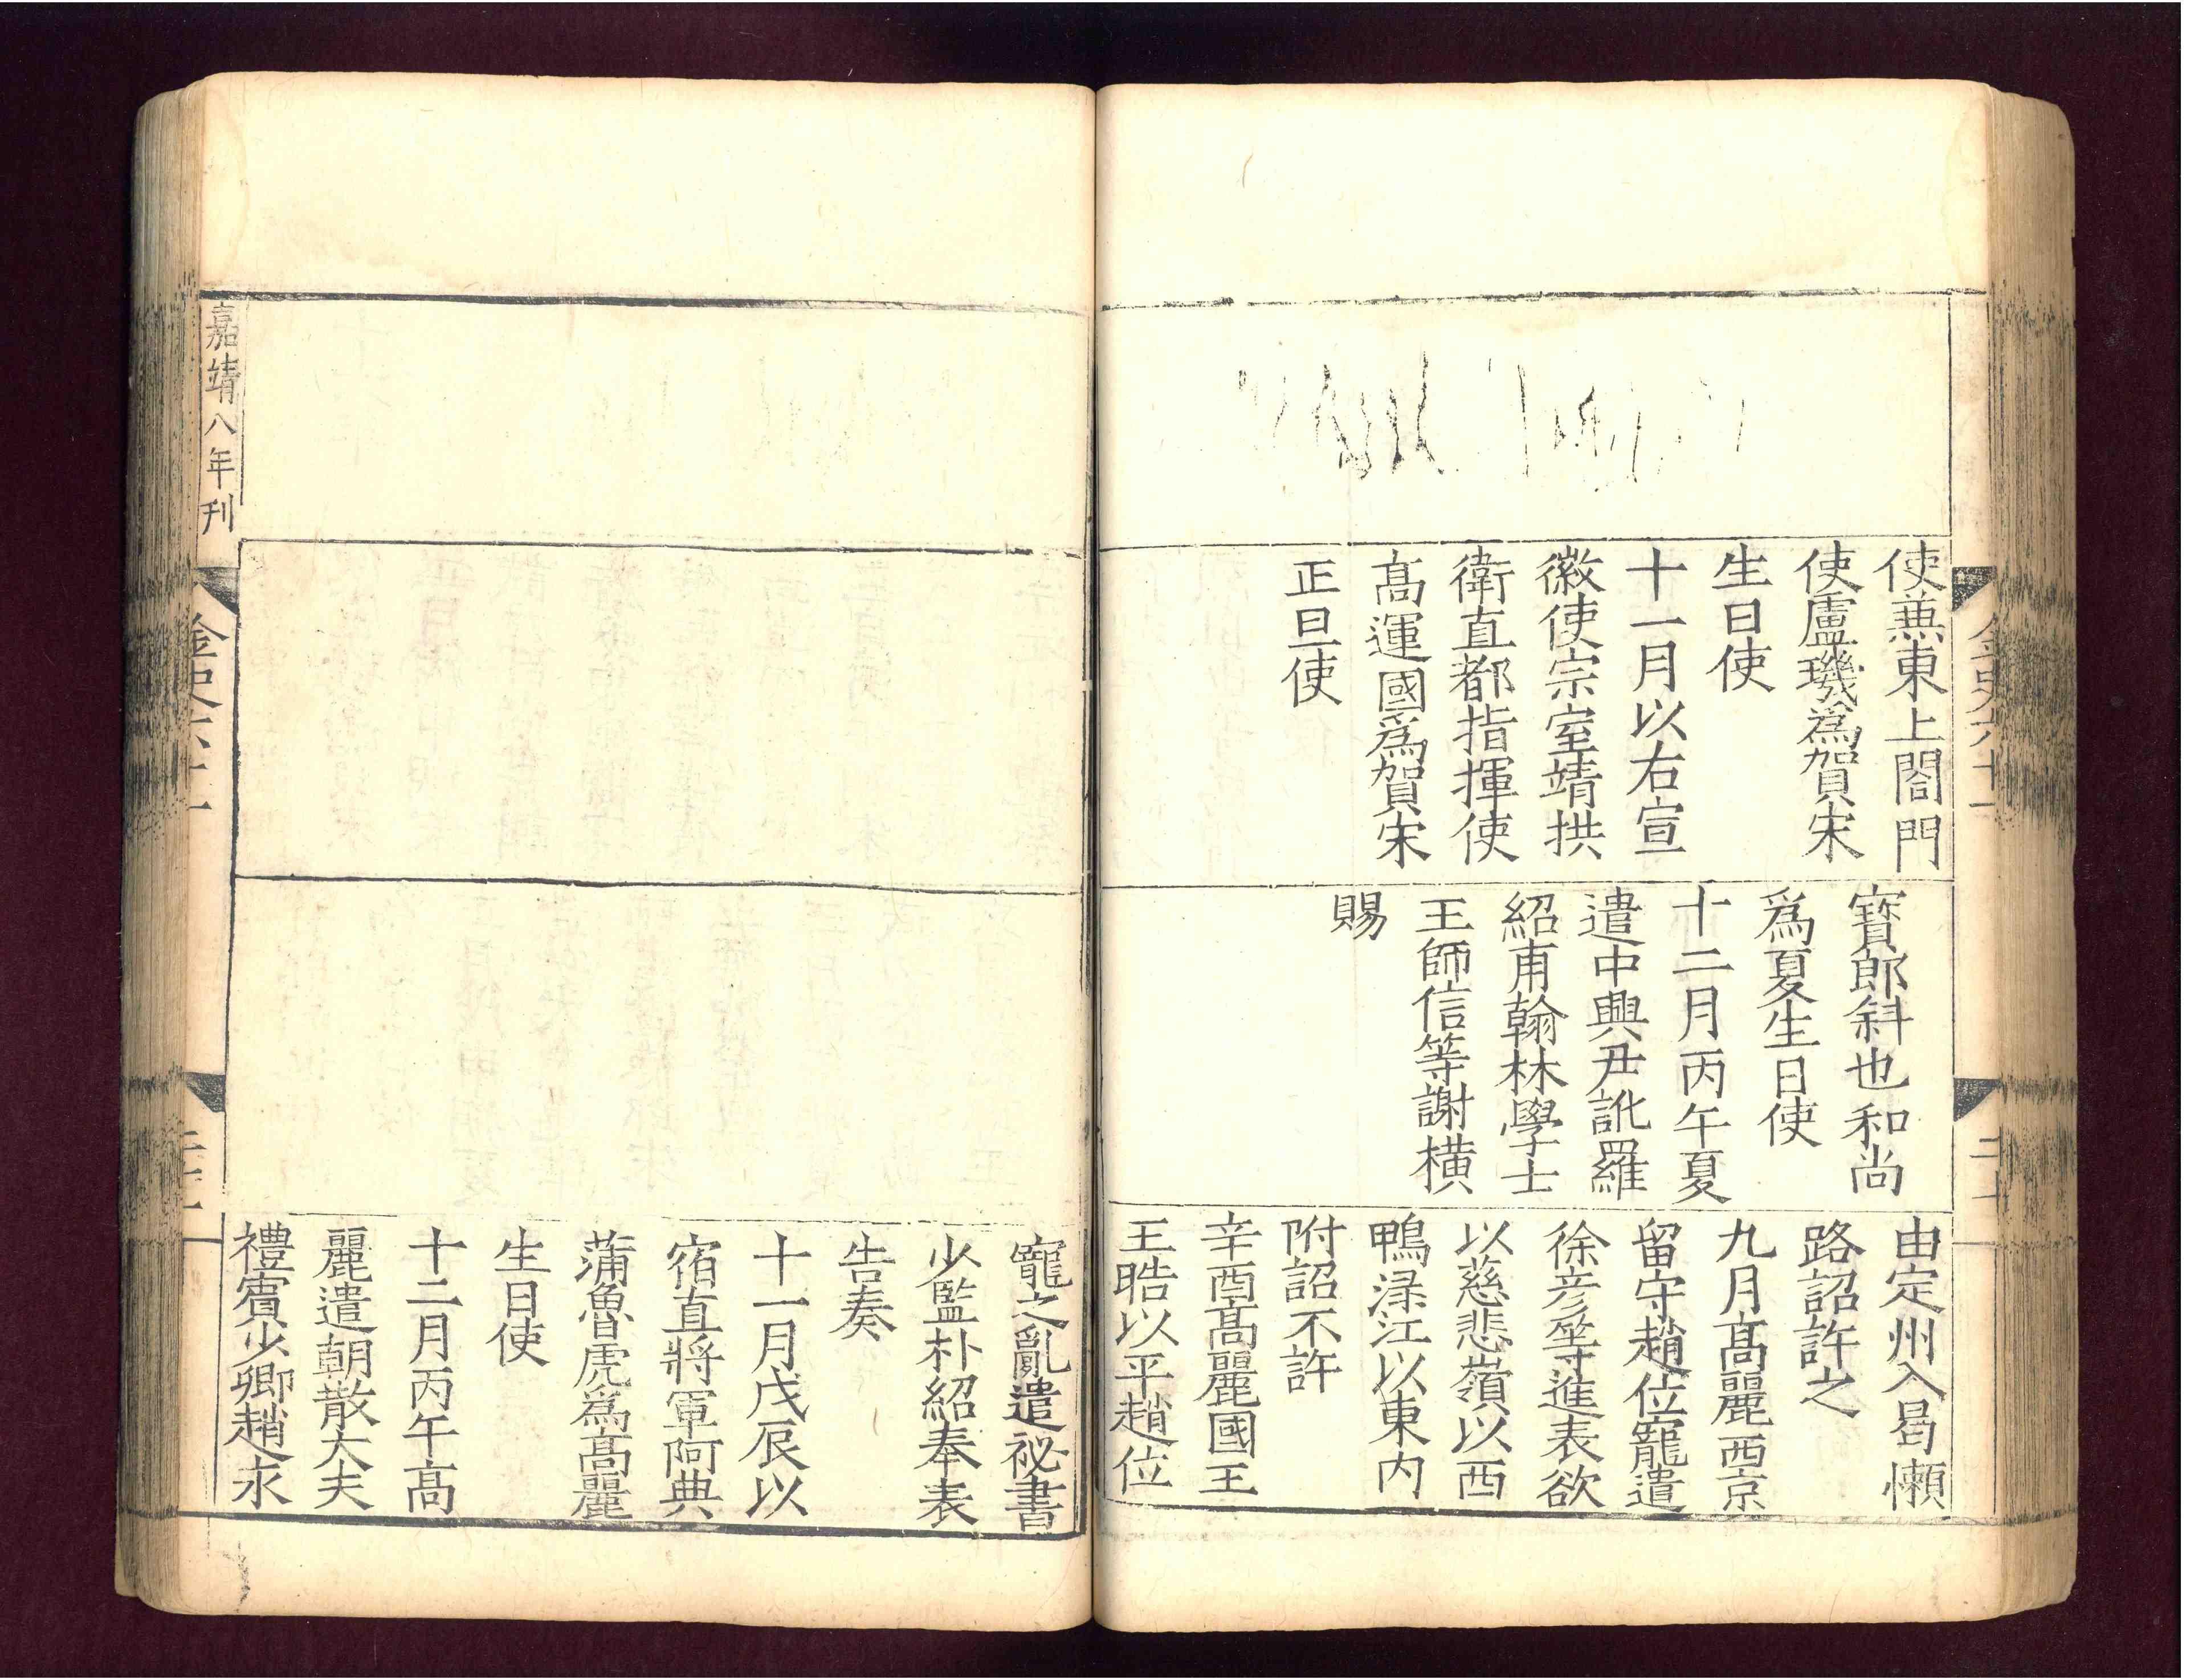 使兼東上閤門
使盧璣爲賀宋
生日使
十一月以右宣
徽使宗室靖拱
衛直都指揮使
髙運國爲賀宋
正旦使
寶郎斜也和尚
爲夏生日使
十二月丙午夏
遣中興尹訛羅
紹甫翰林學士
王師信等謝橫
賜
由定州入曷懶
路詔許之
九月髙麗西京
留守趙位寵遣
徐彦等進表欲
以慈悲嶺以西
鴨渌江以東内
附詔不許
辛酉髙麗國王
王晧以平趙位
寵之亂遣祕書
少監朴紹奉表
告奏
十一月戊辰以
宿直將軍阿典
蒲魯虎爲髙麗
生日使
十二月丙午髙
麗遣朝散大夫
禮賓少卿趙永
嘉靖八年刊
金史六十一